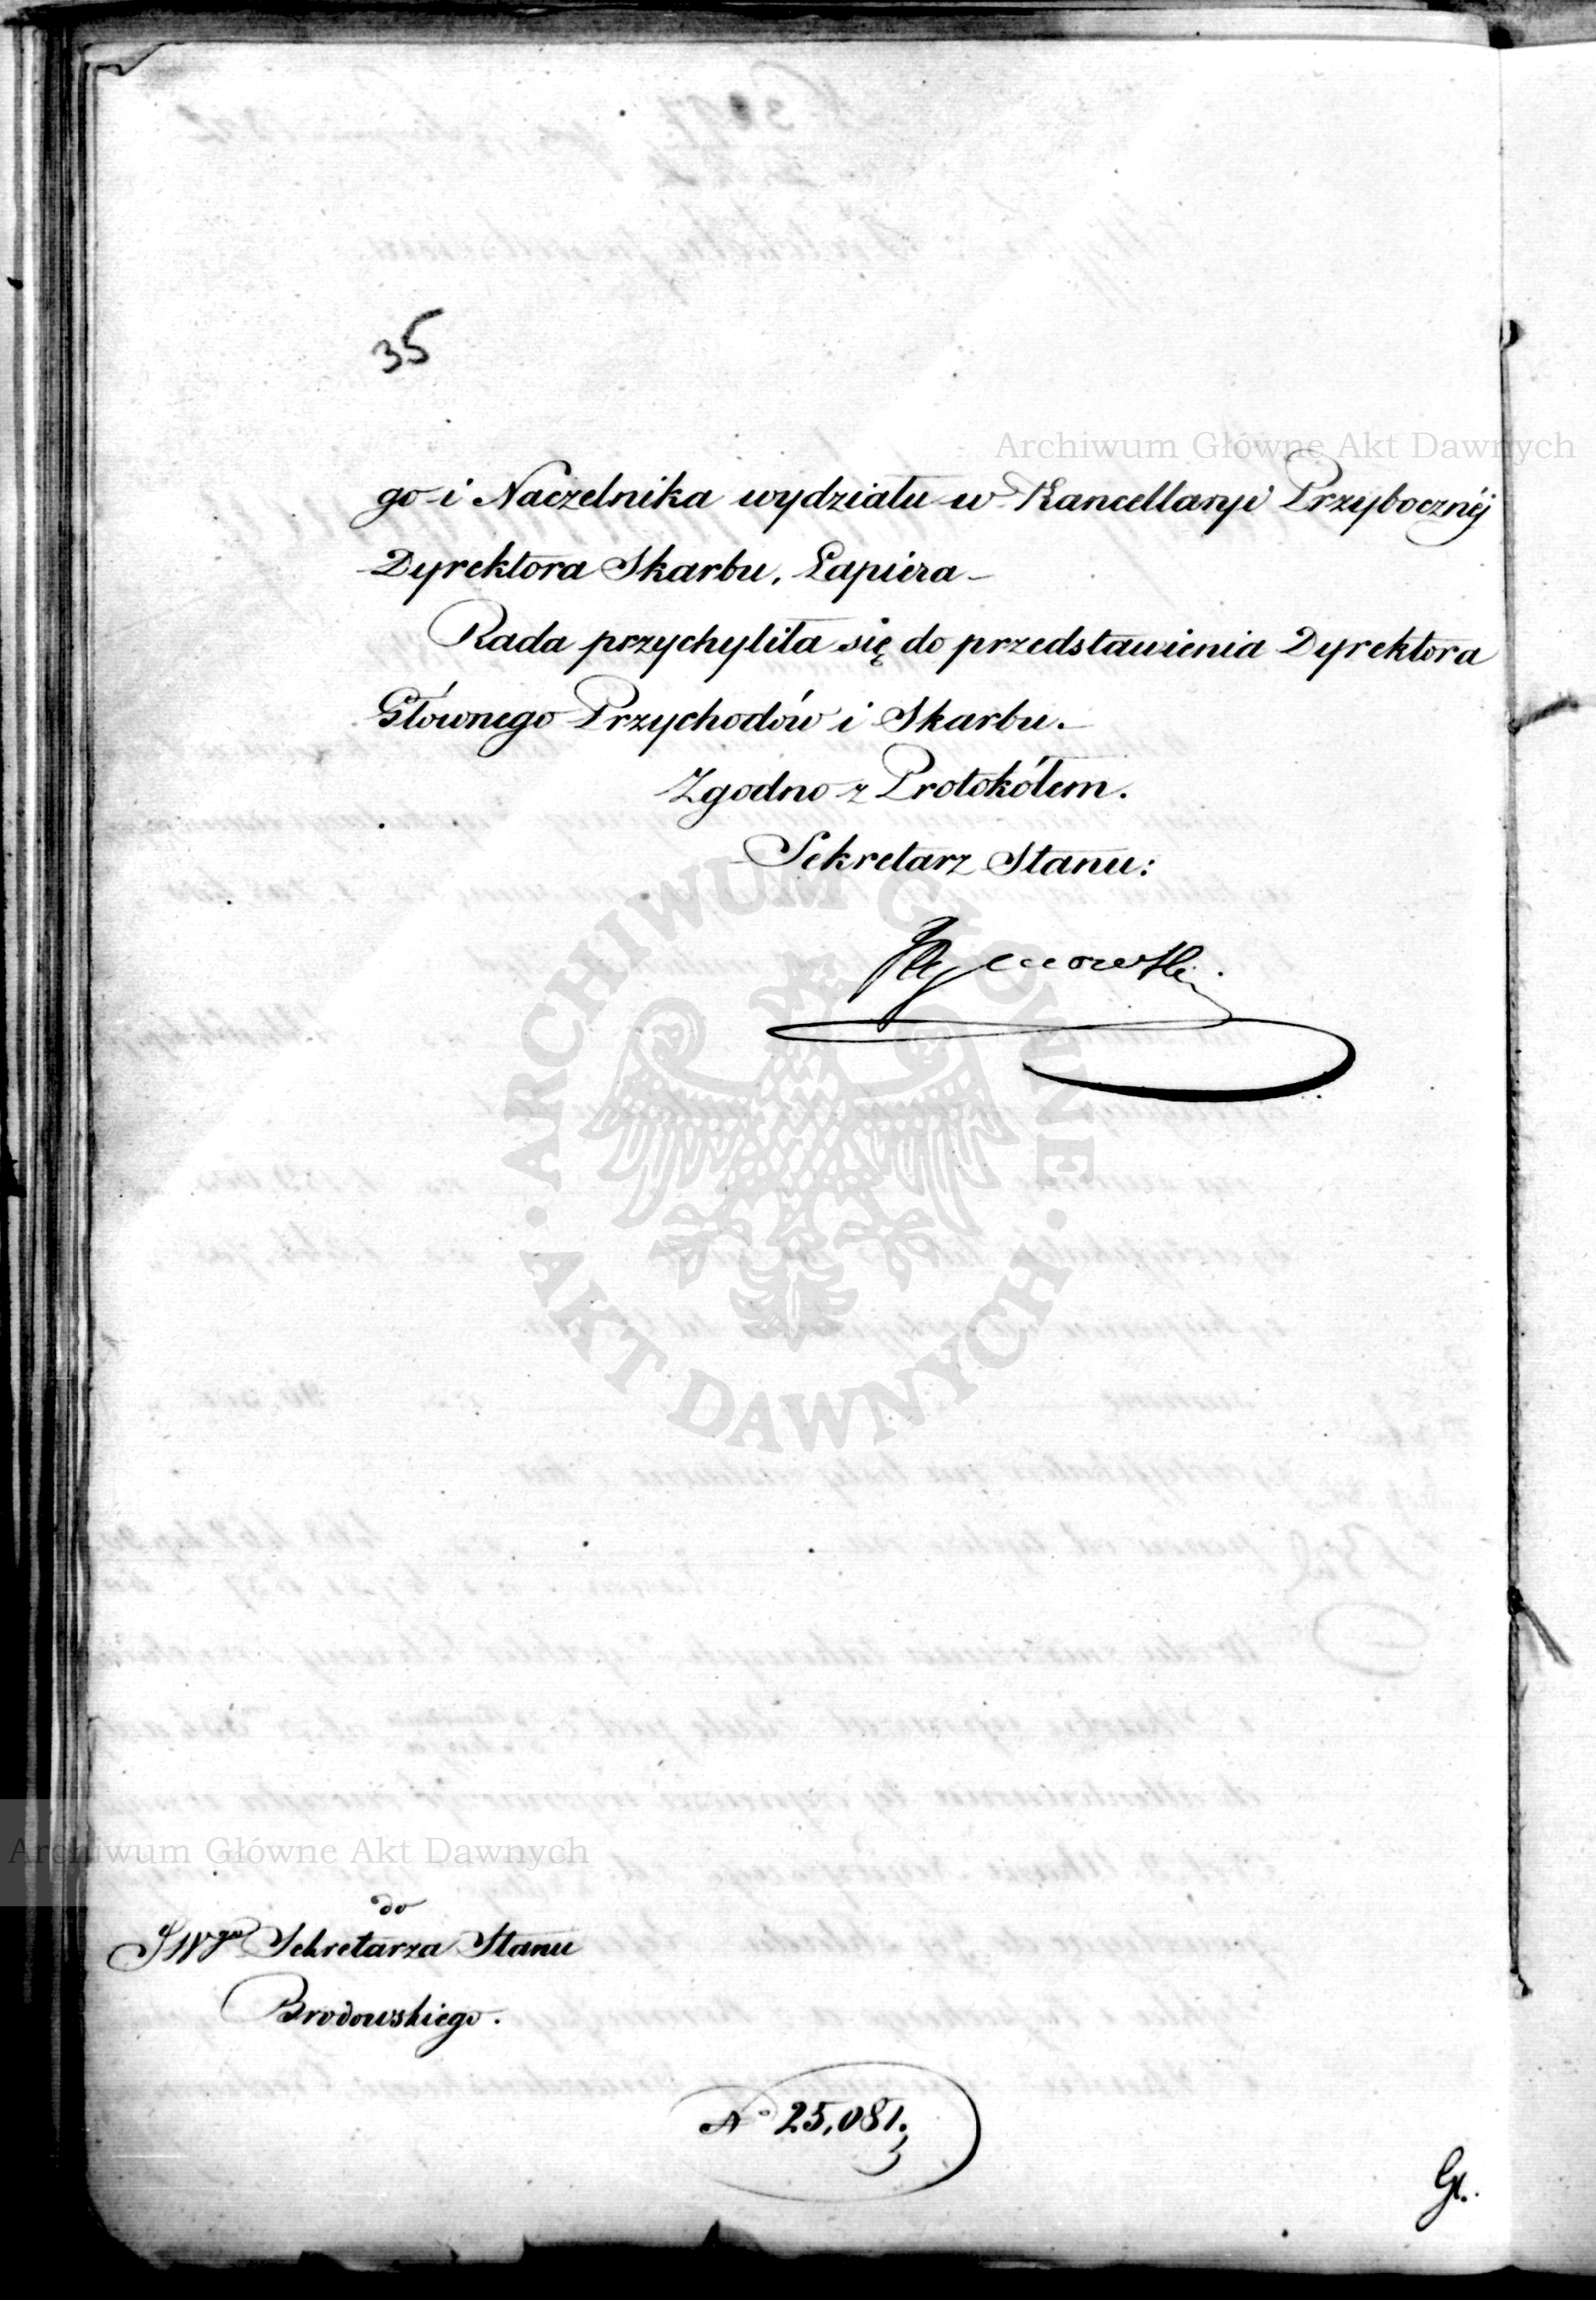 35
Archiwum Główne Akt Dawnych
go i Naczelnika wydziału w Kancellaryi Przybocznéj
Dyrektora Skarbu, Łapiera
Rada przychyliła się do przedstawienia Dyrektora
Głównego Przychodów i Skarbu.
Zgodno z Protokółem.
Sekretarz Stanu:
ARCHIWUM GŁÓWNE
AKT DAWNYCH
Archiwum Główne Akt Dawnych
do
JWgo Sekretarza Stanu
Brodowskiego.
No 25,081.